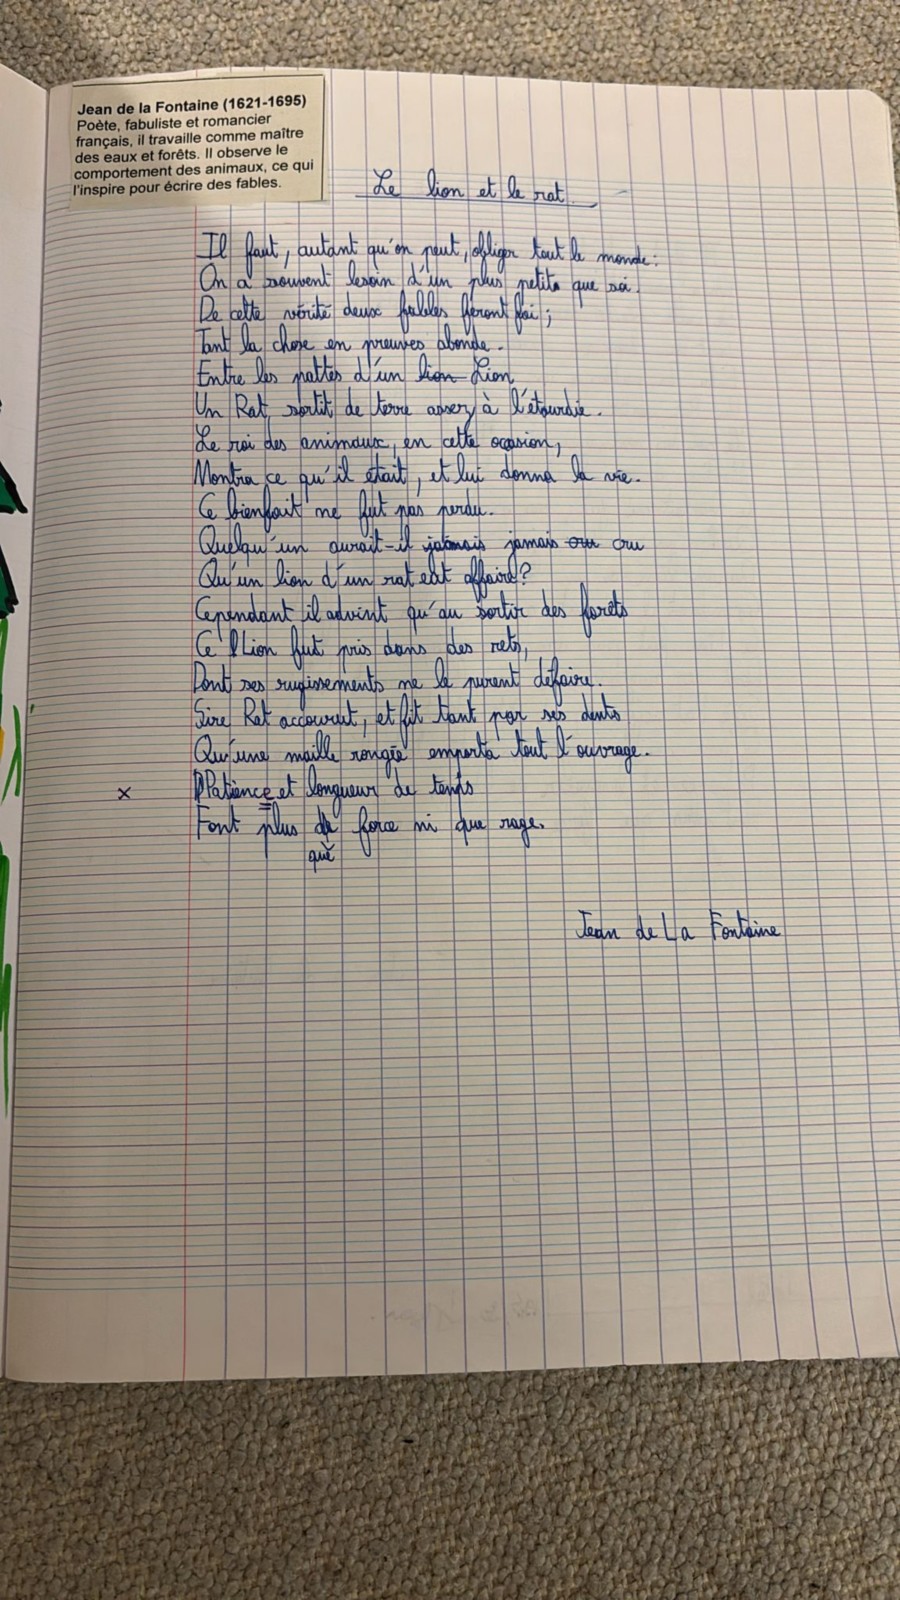 Jean de la Fontaine (1621-1695)
Poète, fabuliste et romancier
français, il travaille comme maître
des eaux et forêts. Il observe le
comportement des animaux, ce qui
l'inspire pour écrire des fables.
Le lion et le rat
Il faut, autant qu'on peut, obliger tout le monde :
On a souvent besoin d'un plus petits que soi.
De cette vérité deux fables feront foi ;
Tant la chose en preuves abonde.
Entre les pattes d'un lion Lion
Un Rat, sortit de terre assez à l'étourdie.
Le roi des animaux, en cette occasion,
Montra ce qu'il était, et lui donna la vie.
Ce bienfait ne fut pas perdu.
Quelqu'un aurait-il jamais jamais cru
Qu'un lion d'un rat eût affaire ?
Cependant il advint qu'au sortir des forêts
Ce Lion fut pris dans des rets,
Dont ses rugissements ne le purent défaire.
Sire Rat accourut, et fit tant par ses dents
Qu'une maille rongée emporta tout l'ouvrage.
x Patience et longueur de temps
Font plus force ni que rage.
que
Jean de La Fontaine